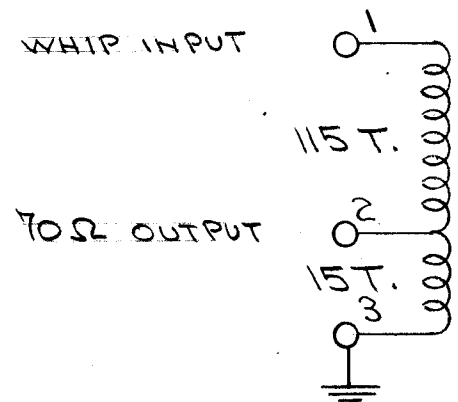 1
WHIP INPUT
115 T.
2
70Ω OUTPUT
15T.
3